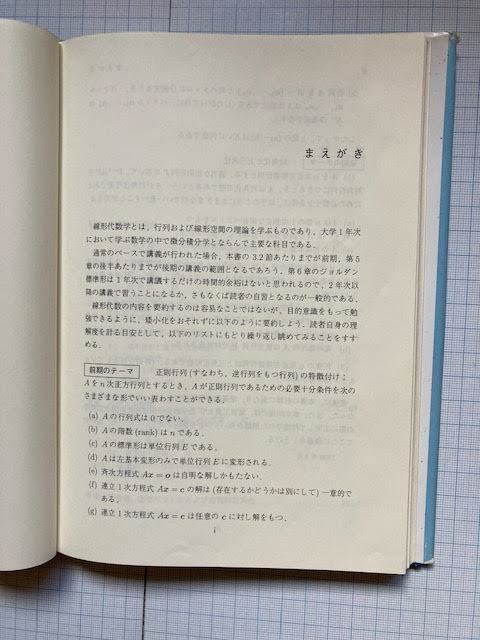 まえがき
線形代数学とは，行列および線形空間の理論を学ぶものであり，大学1年次
において学ぶ数学の中で微分積分学とならんで主要な科目である．
通常のペースで講義が行われた場合，本書の3.2節あたりまでが前期，第5
章の後半あたりまでが後期の講義の範囲となるであろう．第6章のジョルダン
標準形は1年次で講議するだけの時間的余裕はないと思われるので，2年次以
降の講義で習うことになるか，さもなくば読者の自習となるのが一般的である．
線形代数の内容を要約するのは容易なことではないが，目的意識をもって勉
強できるように，矮小化をおそれずに以下のように要約しよう．読者自身の理
解度を計る目安として，以下のリストにもどり繰り返し眺めてみることをすす
める．
前期のテーマ 正則行列（すなわち，逆行列をもつ行列）の特徴付け；
Aをn次正方行列とするとき，Aが正則行列であるための必要十分条件を次の
さまざまな形でいい表わすことができる．
(a) Aの行列式は0でない．
(b) Aの階数(rank)はnである．
(c) Aの標準形は単位行列Eである．
(d) Aは左基本変形のみで単位行列Eに変形される．
(e) 斉次方程式Ax＝oは自明な解しかもたない．
(f) 連立1次方程式Ax＝cの解は(存在するかどうかは別にして)一意的で
ある．
(g) 連立1次方程式Ax＝cは任意のcに対し解をもつ．
i